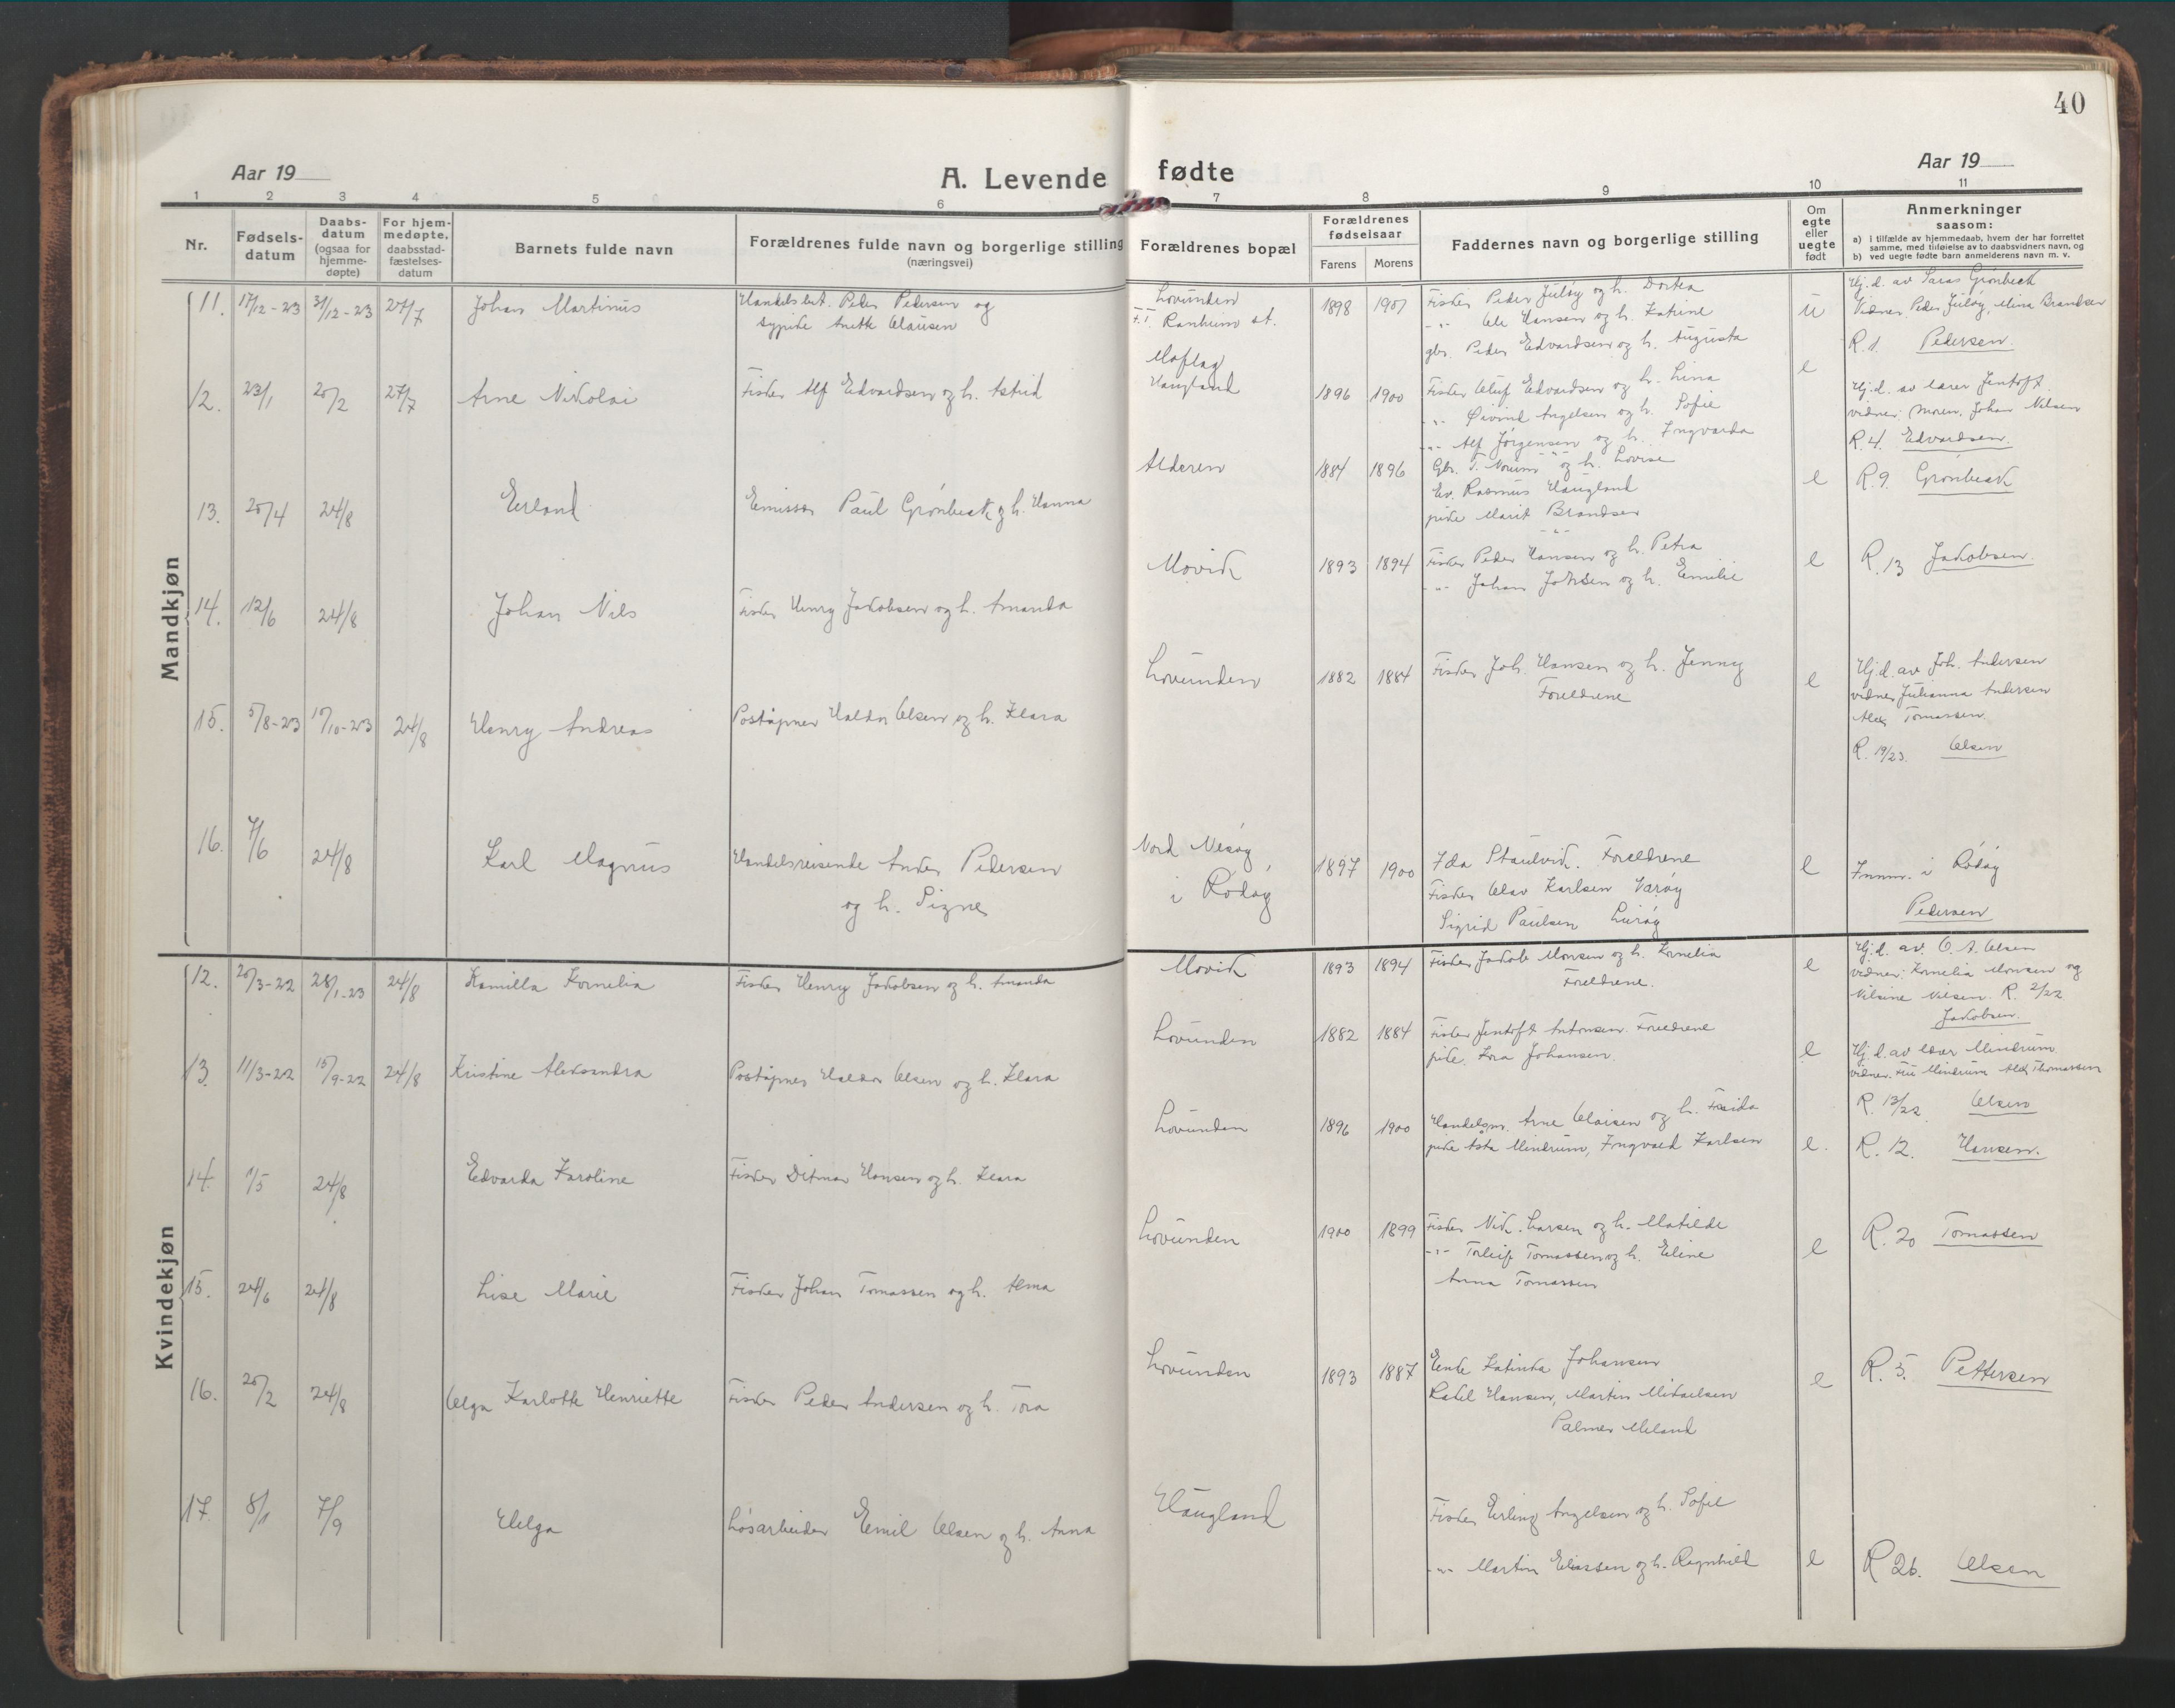 40
Aar 19
A. Levende
fødte
Aar 19
1 2 3 4 5 6 7 8 9 10 11
Nr.
Fødsels-
datum
Daabs-
datum
(ogsaa for
hjemme-
døpte)
For hjem-
medøpte,
daabsstad-
fæstelses-
datum
Barnets fulde navn
Forældrenes fulde navn og borgerlige stilling
(næringsvei)
Forældrenes bopæl
Forældrenes
fødselsaar
Farens
Morens
Faddernes navn og borgerlige stilling
Om
egte
eller
uegte
født
Anmerkninger
saasom:
a) i tilfælde av hjemmedaab, hvem der har forrettet
samme, med tilføielse av to daabsvidners navn, og
b) ved uegte fødte barn anmelderens navn m. v.
Mandkjøn
11. 17/12-23 31/12-23 27/7 Johan Martinus
Handelsbet. Peder Pedersen og
sypike Anette Clausen
Lovunden
F.T. Ranheim st.
1898 1907
Fisker Peder Juløy og h. Dortea
-"- Ole Hansen og h. Katrine
gbr. Peder Edvardsen og h. Augusta
u
Hj.d. av Paras Grønbeck
Vidner Peder Juløy, Mina Brandsen
R. 1. Pedersen.
12. 23/1 20/2 27/7 Arne Nikolai
Fisker Alf Edvardsen og h. Astrid
Haugland
1896 1900
Fisker Oluf Edvardsen og h. Lina
-"- Øivind Angelsen og h. Sofie
-"- Alf Jørgensen og h. Ingvarda
e
Hj.d. av lærer Jentoft.
vidner: Moren, Johan Nilsen
R. 4. Edvardsen.
13. 20/4 24/8 Erland
Emissær Paul Grønbeck og h. Hanna
Alderen
1884 1896
Gbr. T. Noreim og h. Lovise
Ev. Rasmus Haugland
pike Marit Brandsen
e
R. 9. Grønbeck
14. 12/6 24/8 Johan Nils
Fisker Henry Jakobsen og h. Amanda
Movik
1893 1894
Fisker Peder Hansen og h. Petra
-"- Johan Johnsen og h. Emilie
e
R. 13 Jakobsen.
15. 5/8-23 19/10-23 24/8 Henry Andreas
Poståpner Haldor Olsen og h. Klara
Lovunden
1882 1884
Fisker Joh. Hansen og h. Jenny
Foreldrene
e
Hj.d. av Joh. Andersen
vidner Julianna Andersen
Alex Tomassen.
R. 19/23. Olsen
16. 7/6 24/8 Karl Magnus
Handelsreisende Anders Pedersen
og h. Signe
Nord Nesøy
i Rødøy
1897 1900
Ida Staulvik. Foreldrene
Fisker Olav Karlsen Værøy
Sigrid Paulsen Lurøy
e
Innm. i Rødøy
Pedersen
Kvindekjøn
12. 20/3-22 28/1-23 24/8 Kamilla Kornelia
Fisker Henry Jakobsen og h. Amanda
Movik
1893 1894
Fisker Jakob Monsen og h. Kornelia
Foreldrene.
e
Hj.d. av. O. A. Olsen
vidner: Kornelia Monsen og
Nilsine Nilsen. R. 2/22
Jakobsen.
13. 11/3-22 15/9-22 24/8 Kristine Aleksandra
Poståpner Haldor Olsen og h. Klara
Lovunden
1882 1884
Fisker Jentoft Antonsen. Foreldrene
pike. Kora Johansen.
e
Hj.d. av lærer Mindrum
vidner. Fru Mindrum Alex Thomassen
R. 13/22 Olsen
14. 1/5 24/8 Edvarda Karoline
Fisker Ditmar Hansen og h. Klara
Lovunden
1896 1900
Handelsm. Arne Olaisen og h. Frida
pike Asta Mindrum, Ingvald Karlsen
e.
R. 12. Hansen.
15. 24/6 24/8 Lise Marie
Fisker Johan Tomassen og h. Alma
Lovunden
1900 1899
Fisker Nik. Larsen og h. Matilde
-"- Torleif Tomassen og h. Eline
Anna Tomassen
e
R. 20 Tomassen
16. 20/2 24/8 Olga Karlotte Henriette
Fisker Peder Andersen og h. Tora
Lovunden
1893 1887
Enke Katinka Johansen
Rakel Hansen, Martin Mikaelsen
Palmer Meland
e
R. 5. Pettersen
17. 8/1 7/9 Helga
Løsarbeider Emil Olsen og h. Anna
Haugland
Fisker Erling Angelsen og h. Sofie
-"- Martin Eliassen og h. Ragnhild
e
R 26. Olsen